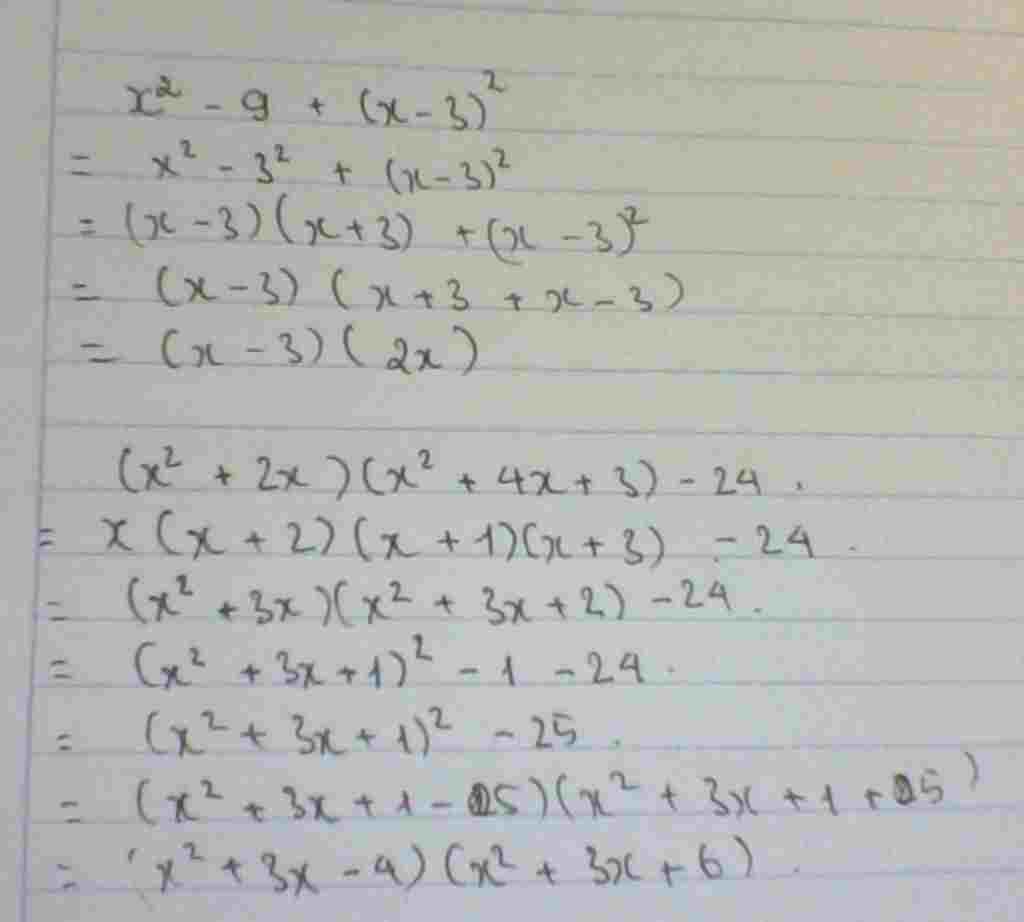 x² - 9 + (x - 3)²
= x² - 3² + (x - 3)²
= (x - 3)(x + 3) + (x - 3)²
= (x - 3) (x + 3 + x - 3)
= (x - 3) (2x)
(x² + 2x)(x² + 4x + 3) - 24.
= x (x + 2) (x + 1)(x + 3) - 24.
= (x² + 3x)(x² + 3x + 2) - 24.
= (x² + 3x + 1)² - 1 - 24.
= (x² + 3x + 1)² - 25.
= (x² + 3x + 1 - 5)(x² + 3x + 1 + 5)
= (x² + 3x - 4) (x² + 3x + 6).